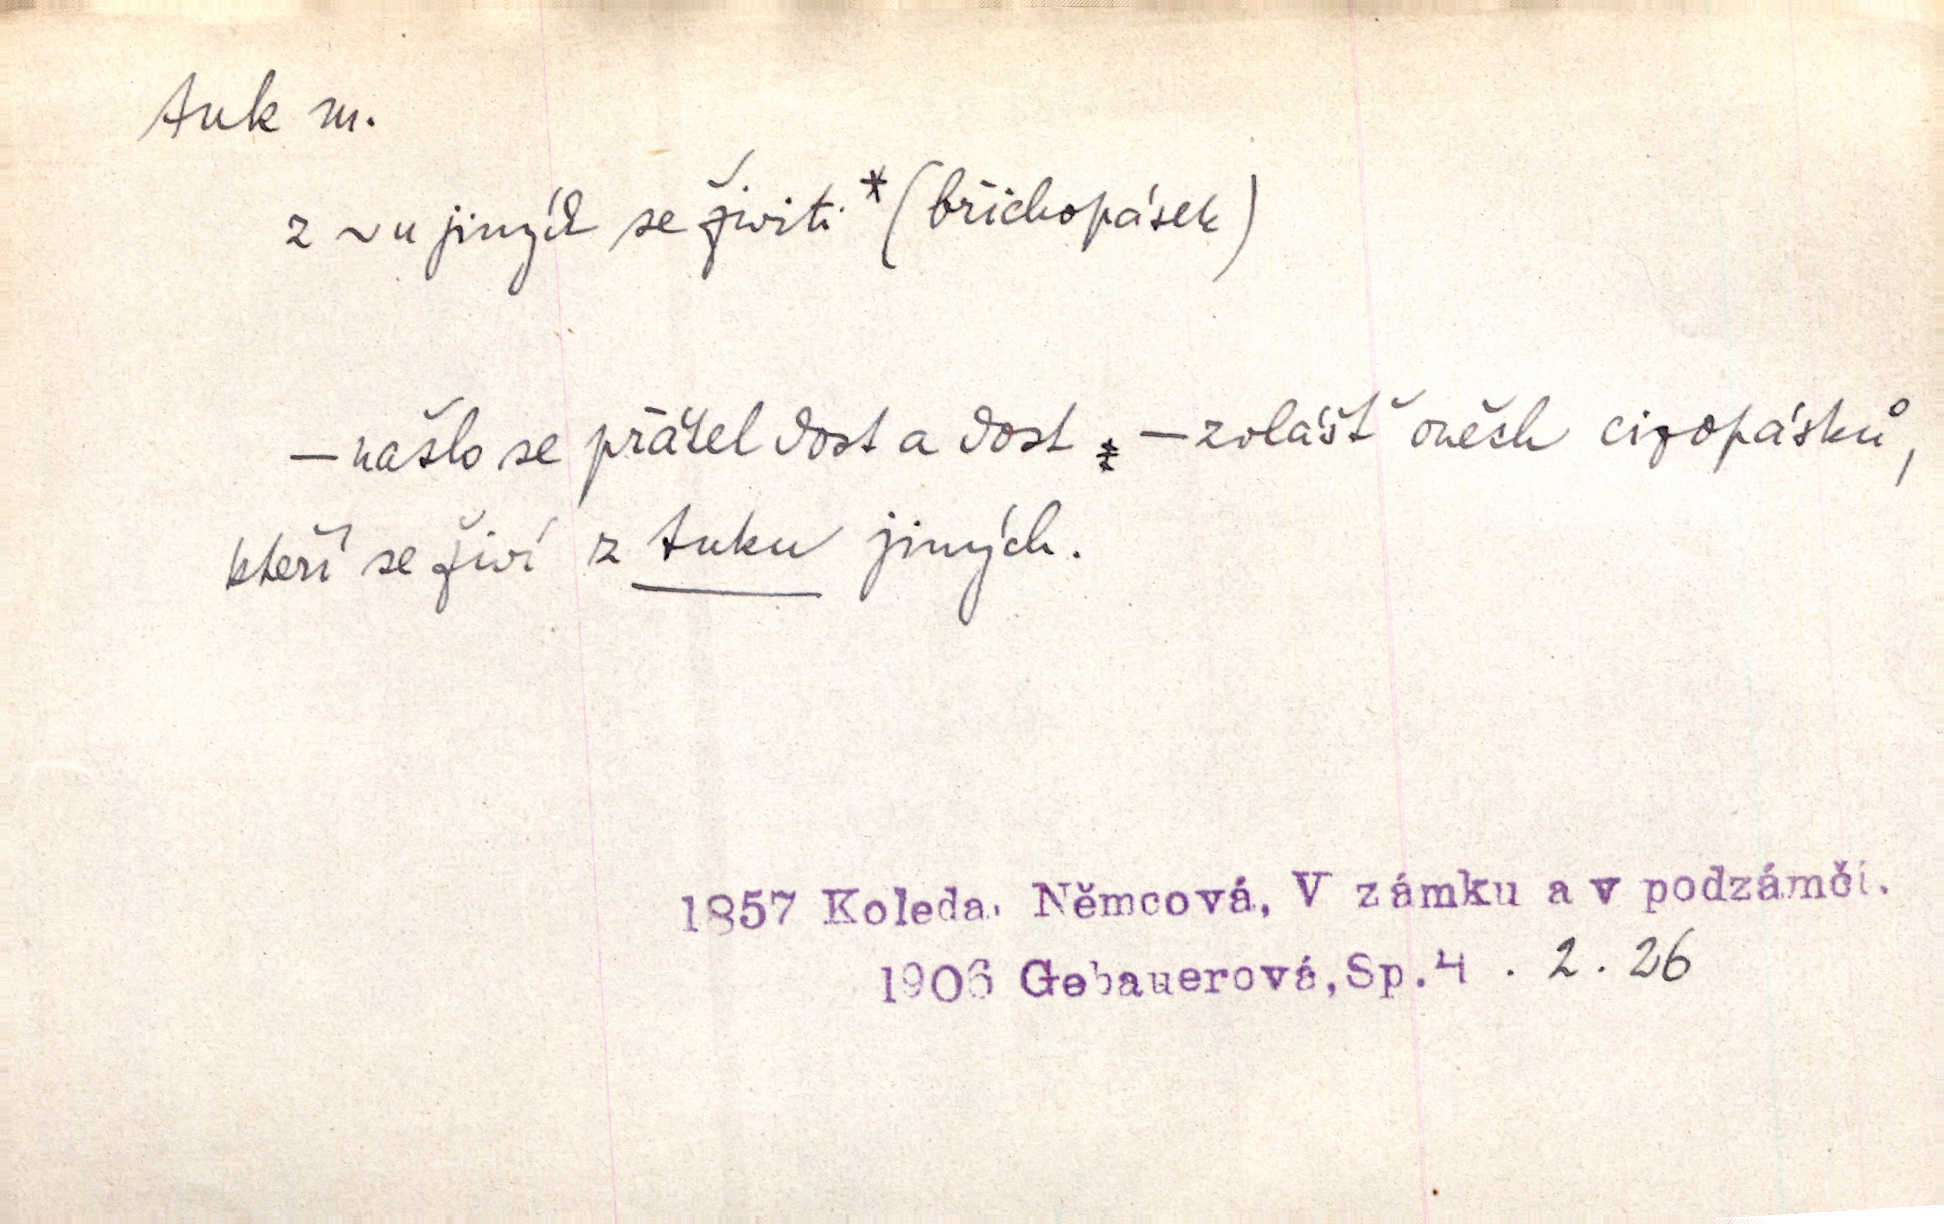 tuk m.
z ~u jiných se živiti * (břichopásek)
– našlo se přátel dost a dost – zvlášť oněch cizopásků,
kteří se živí z tuku jiných.
1857 Koleda. Němcová, V zámku a v podzámčí.
1906 Gebauerová, Sp.4 . 2 . 26